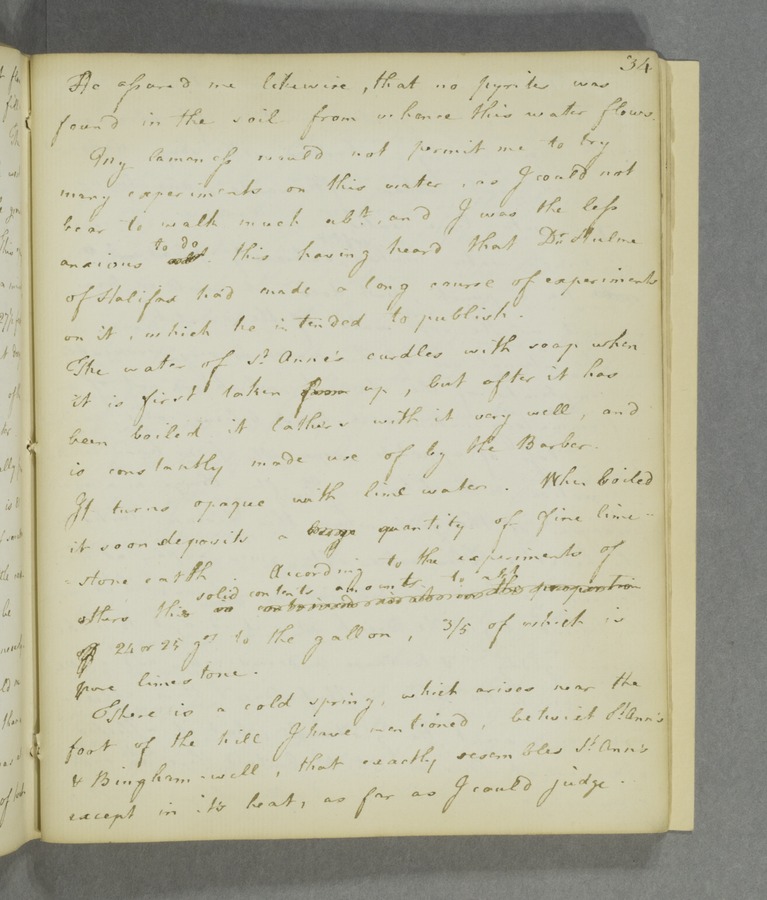 34
He assured me likewise, that no pyrites was
found in the soil from whence this water flows.
My lameness would not permit me to try
many experiments on this water, as I could not
bear to walk much abt. and I was the less
anxious to do this having heard that Dr. Hulme
of Halifax had made a long course of experiments
on it, which he intended to publish.
The water of St. Anne's curdles with soap when
it is first taken from up, but after it has
been boiled it lathers with it very well, and
is constantly made use of by the Barber.
It turns opaque with lime water. When boiled
it soon deposits a large quantity of fine lime-
-stone earth According to the experiments of
solid contents amounts to abt
others this contained in the proportion
of 24 or 25 grs to the gallon, 3/5 of which is
pure limestone.
There is a cold spring, which arises near the
foot of the hill I have mentioned, betwixt St. Ann's
& Bingham-well, that exactly resembles St. Ann's
except in its heat, as far as I could judge.